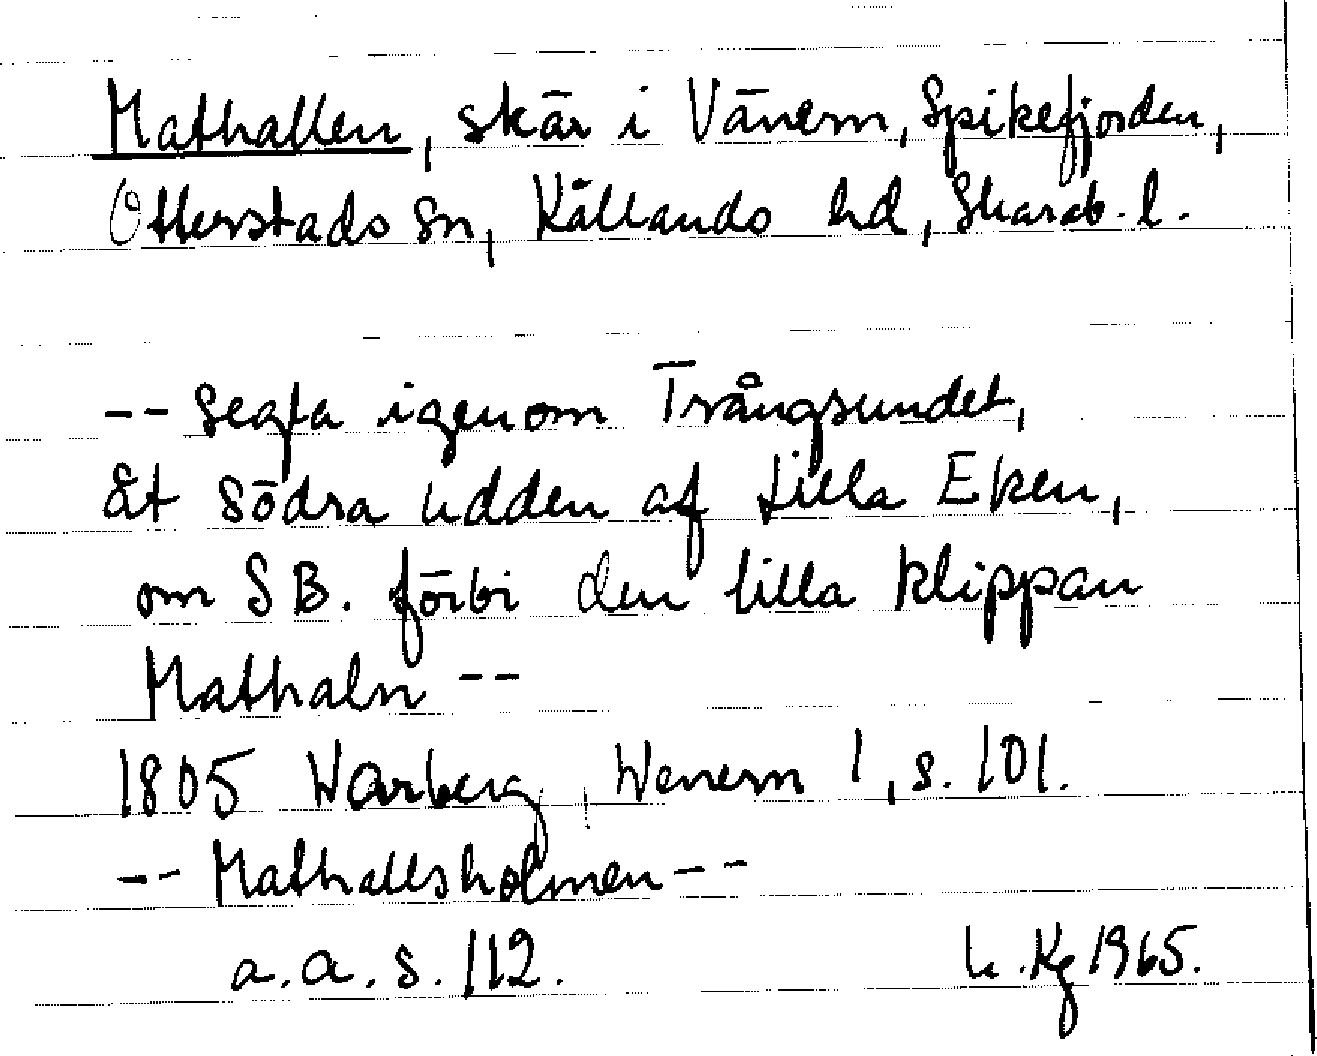 Mathallen, skär i Vänern, Spikefjorden,
Otterstads sn, Kållands hd, Skarab. l.
-- segla igenom Trångsundet,
åt södra udden af Lilla Eken,
om SB. förbi den lilla klippan
Mathaln --
1805 Warberg, Wenern 1, s. 101.
-- Mathallsholmen --
a.a. s. 112.
Kg 1965.